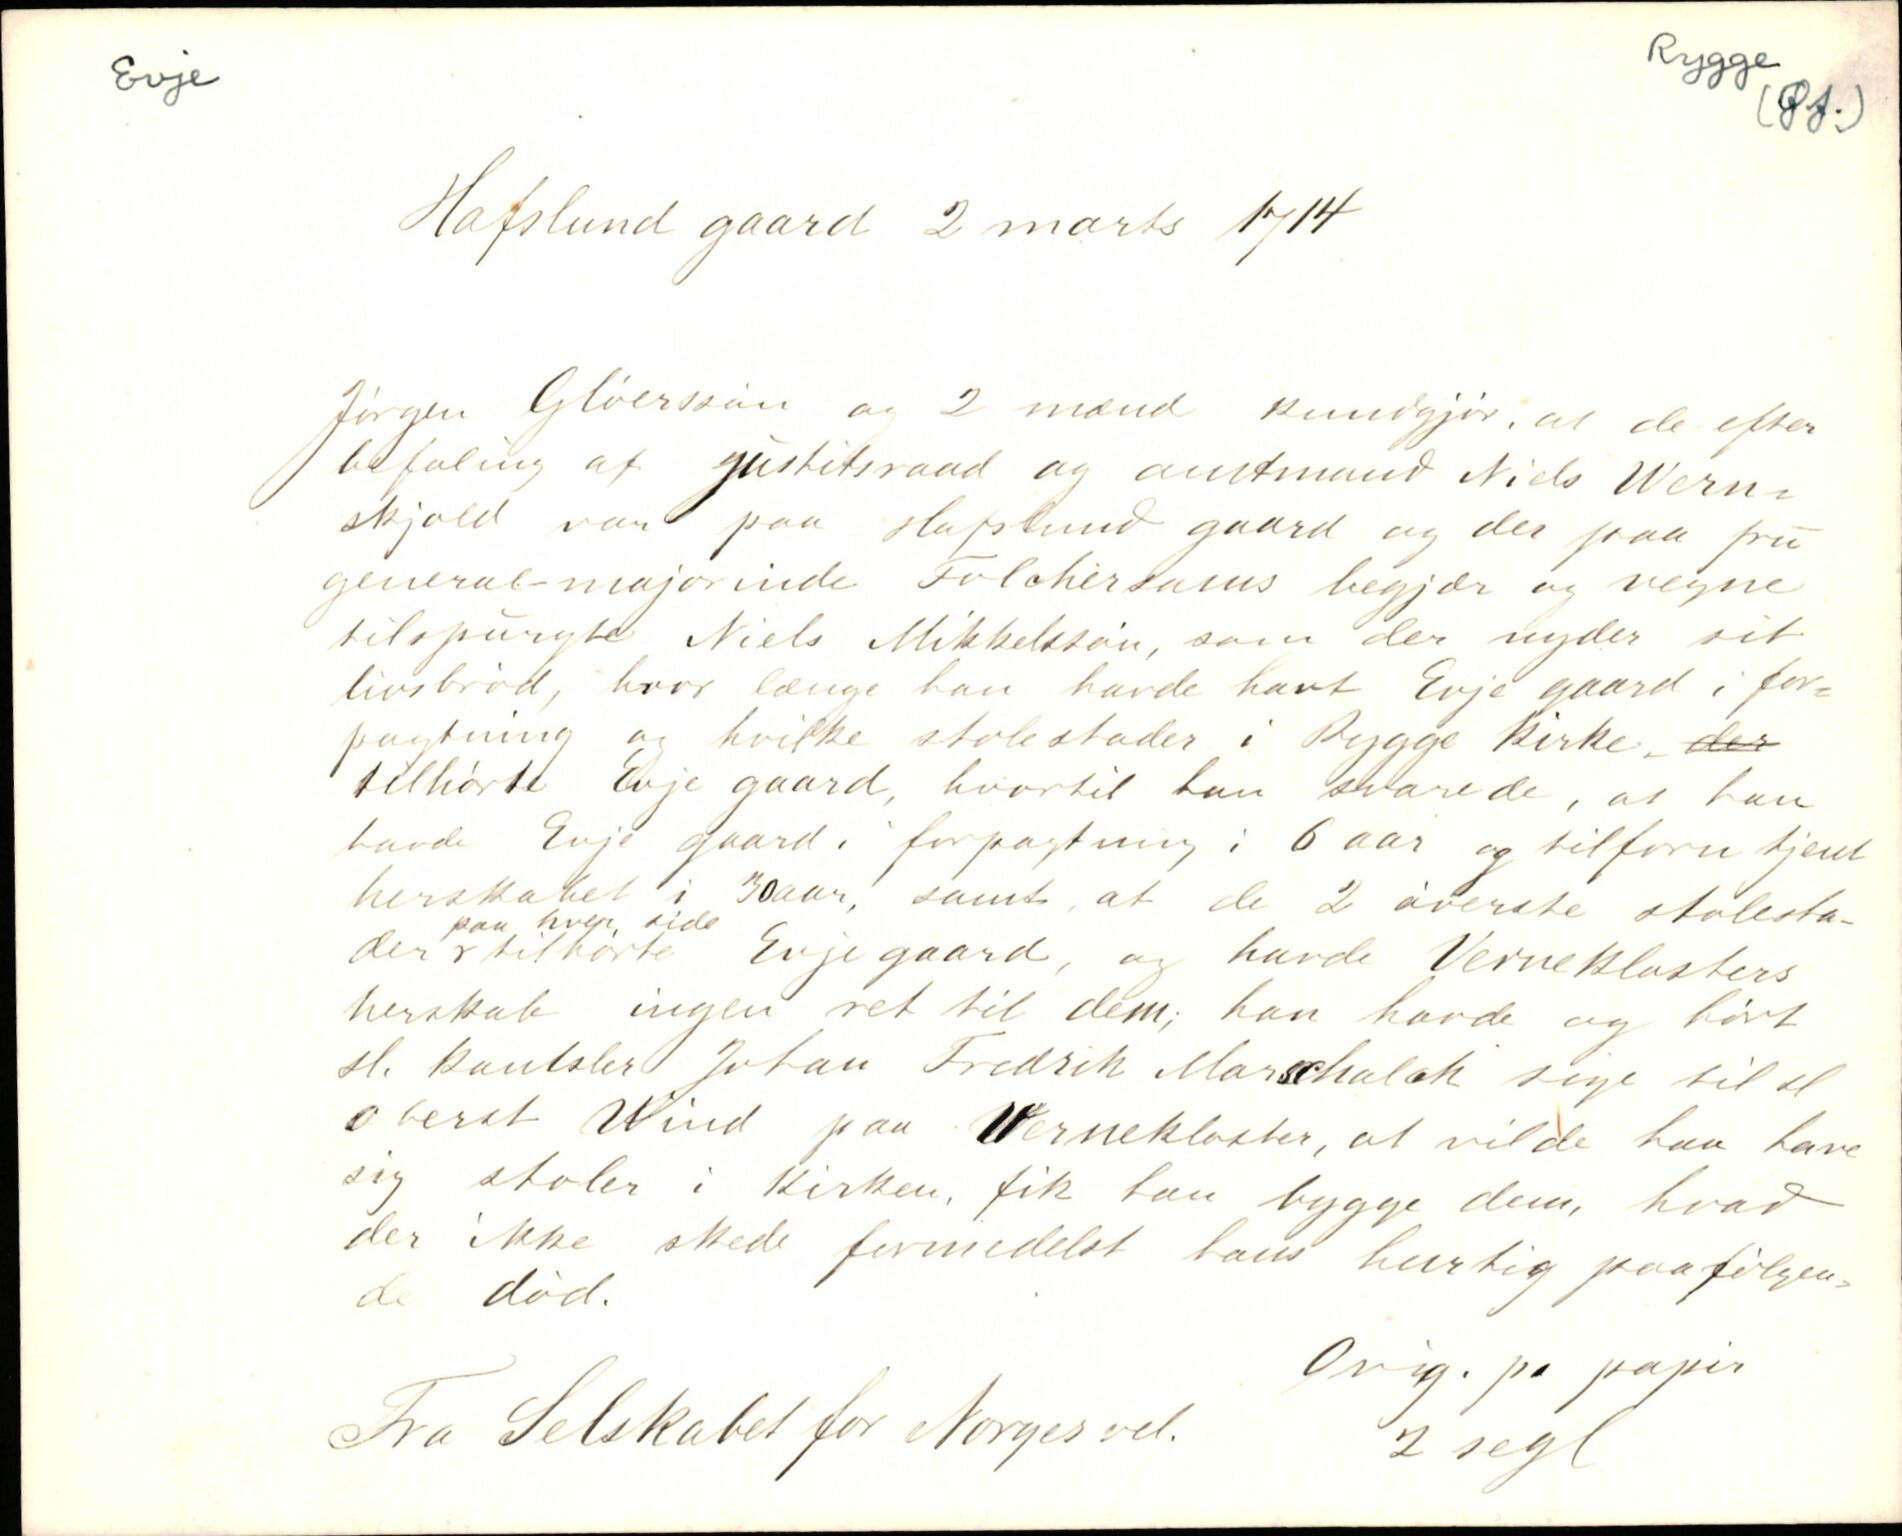 Evje
Rygge
(Øf.)
Hafslund gaard 2 marts 1714
Jörgen Glöerssön og 2 mænd kundgjör, at de efter
befaling af justitsraad og amtmand Niels Wern=
skjold var paa Hafslund gaard og der paa fru
general-majorinde Folchersams begjær og vegne
tilspurgte Niels Mikkelssön, som der nyder sit
livsbröd, hvor længe han havde havt Evje gaard i for=
pagtning og hvilke stolestader i Rygge Kirke, der
tilhörte Evje gaard, hvortil han svarede, at han
havde Evje gaard i forpagtning i 6 aar og tilforn tjent
herskabet i 30 aar, samt at de 2 överste stolesta-
paa hver side
der tilhörte Evje gaard, og havde Verneklosters
herskab ingen ret til dem; han havde og hört
sl. kantsler Johan Fredrik Marschalck sige til sl
oberst Wind paa Wernekloster, at vilde han have
sig stoler i kirken, fik han bygge dem, hvad
der ikke skede formedelst hans hurtig paafölgen=
de död.
Orig. på papir
Fra Selskabet for Norges vel.
2 segl